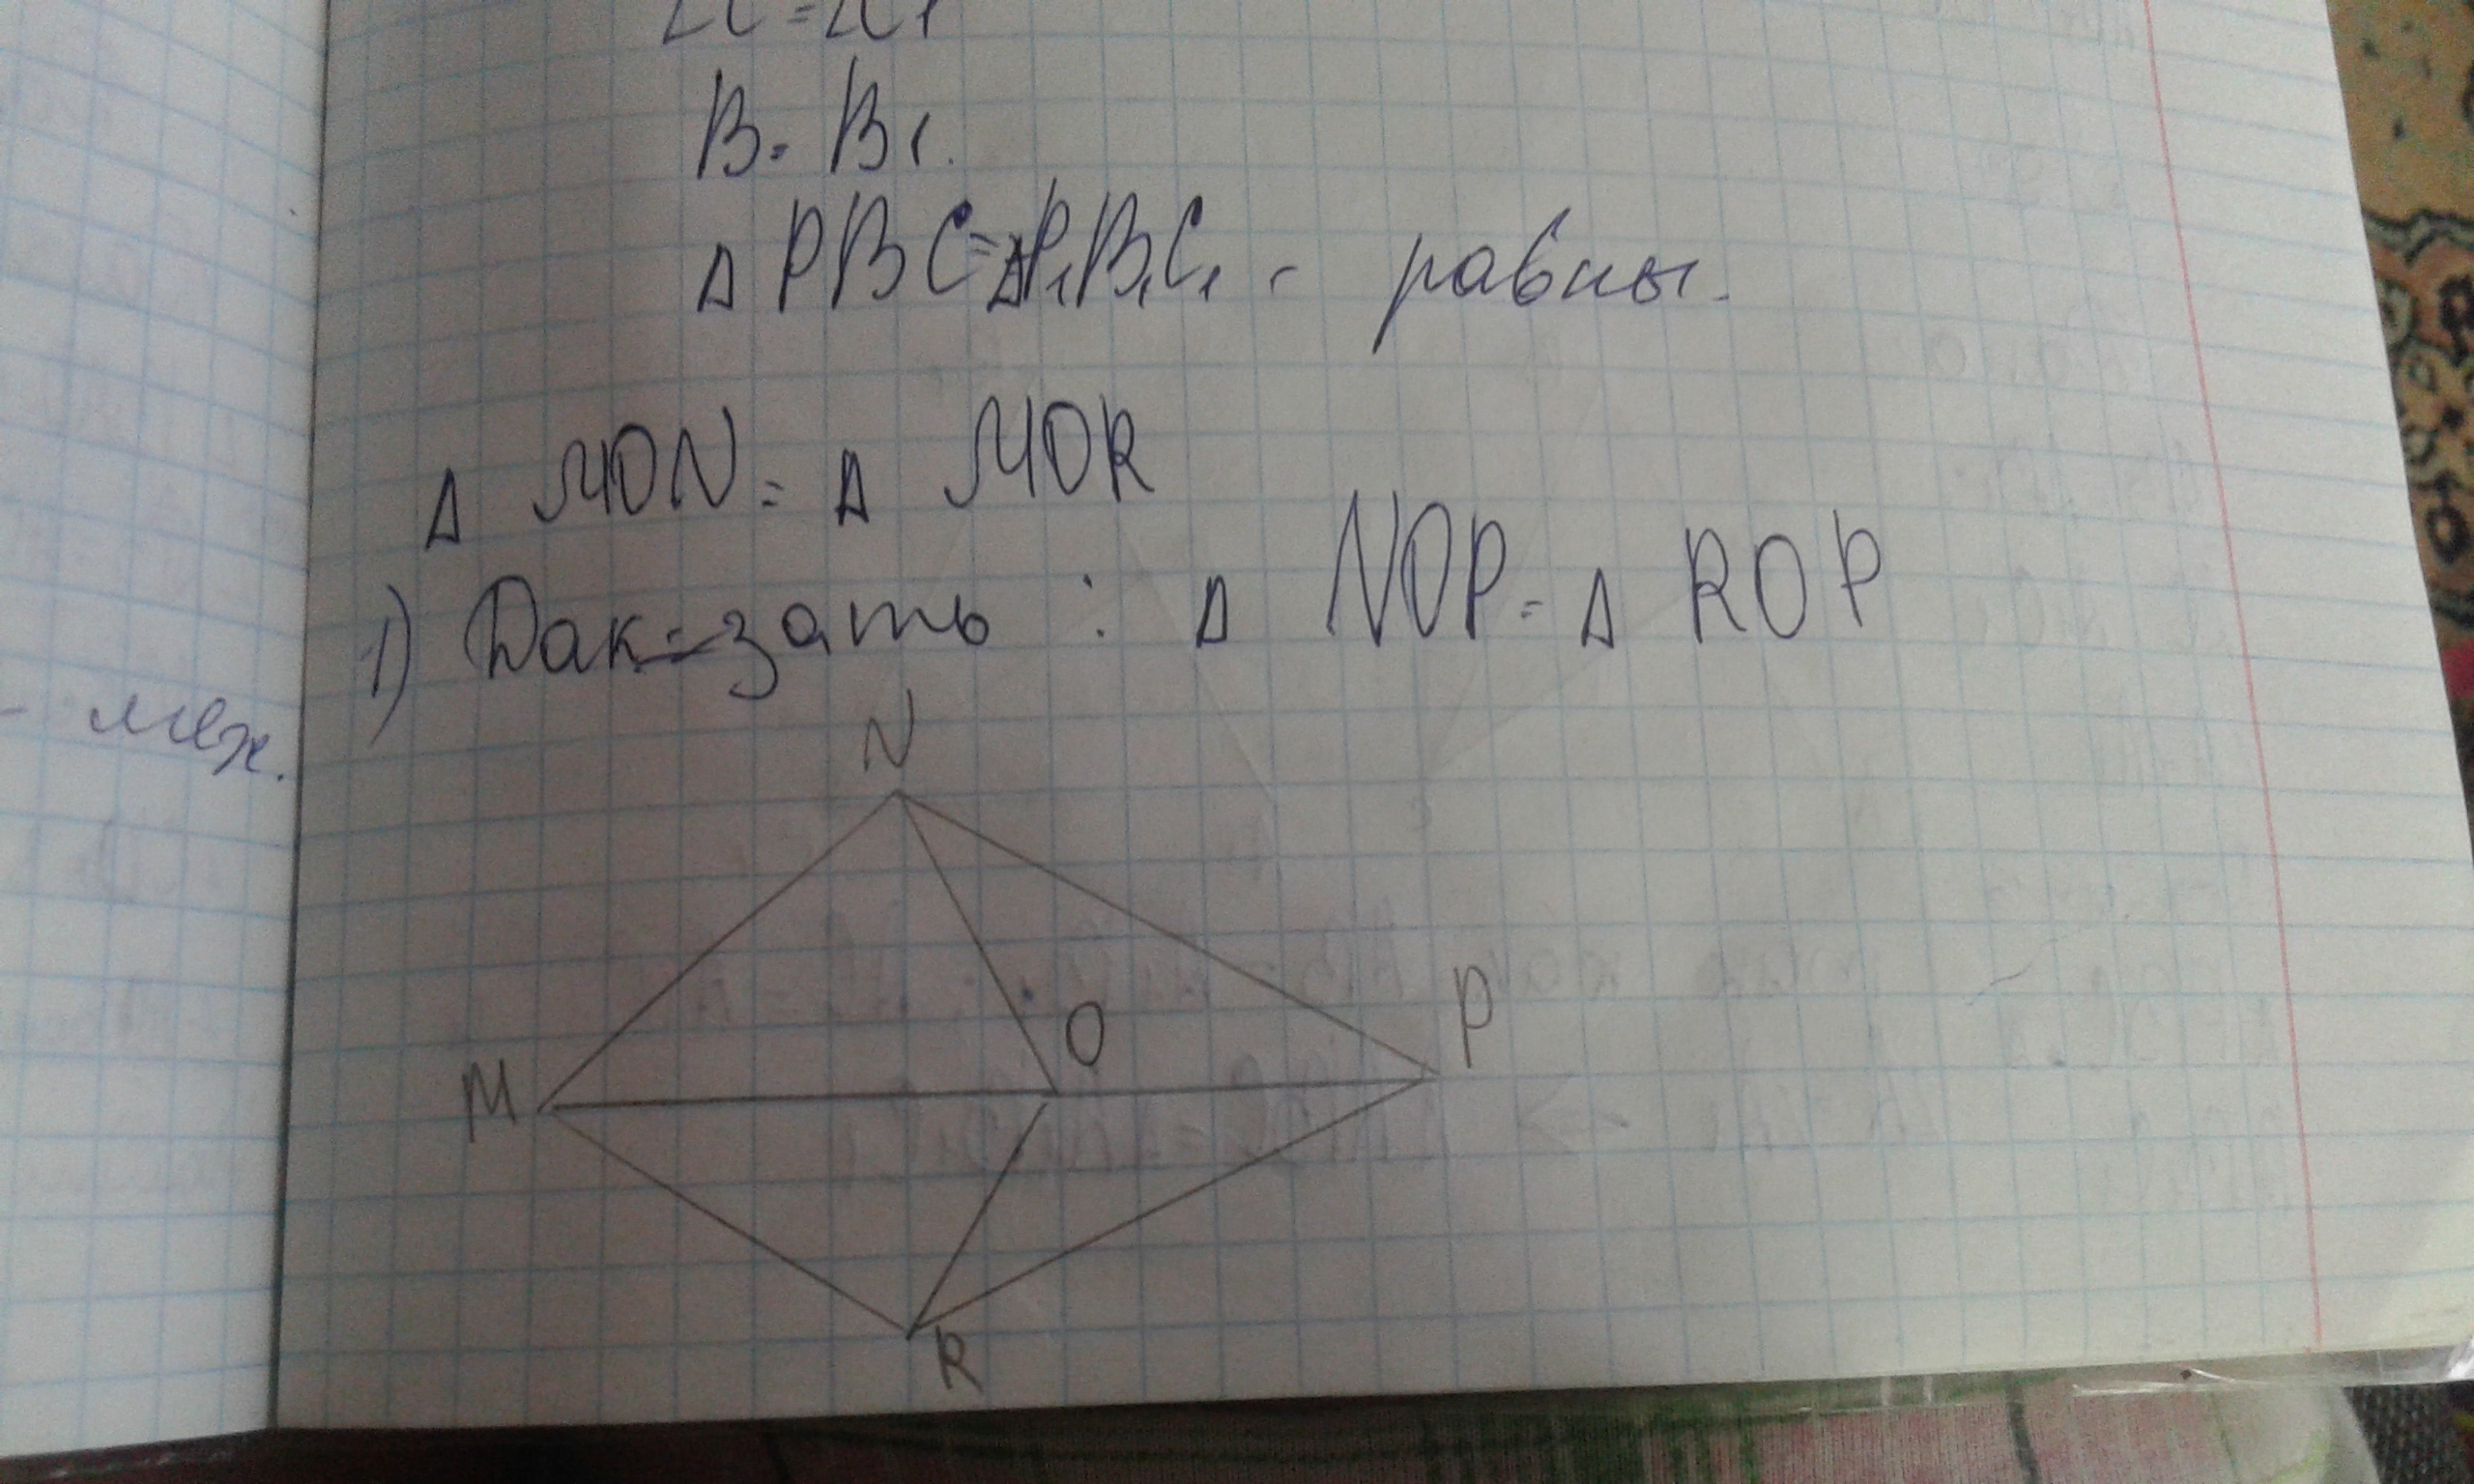 ∠C=∠C1
B= B1.
Δ PBC=ΔP1B1C1 - равны.
Δ MON = Δ MOR
1) Док-зать : Δ NOP = Δ ROP
- меж.
N
O
P
M
R